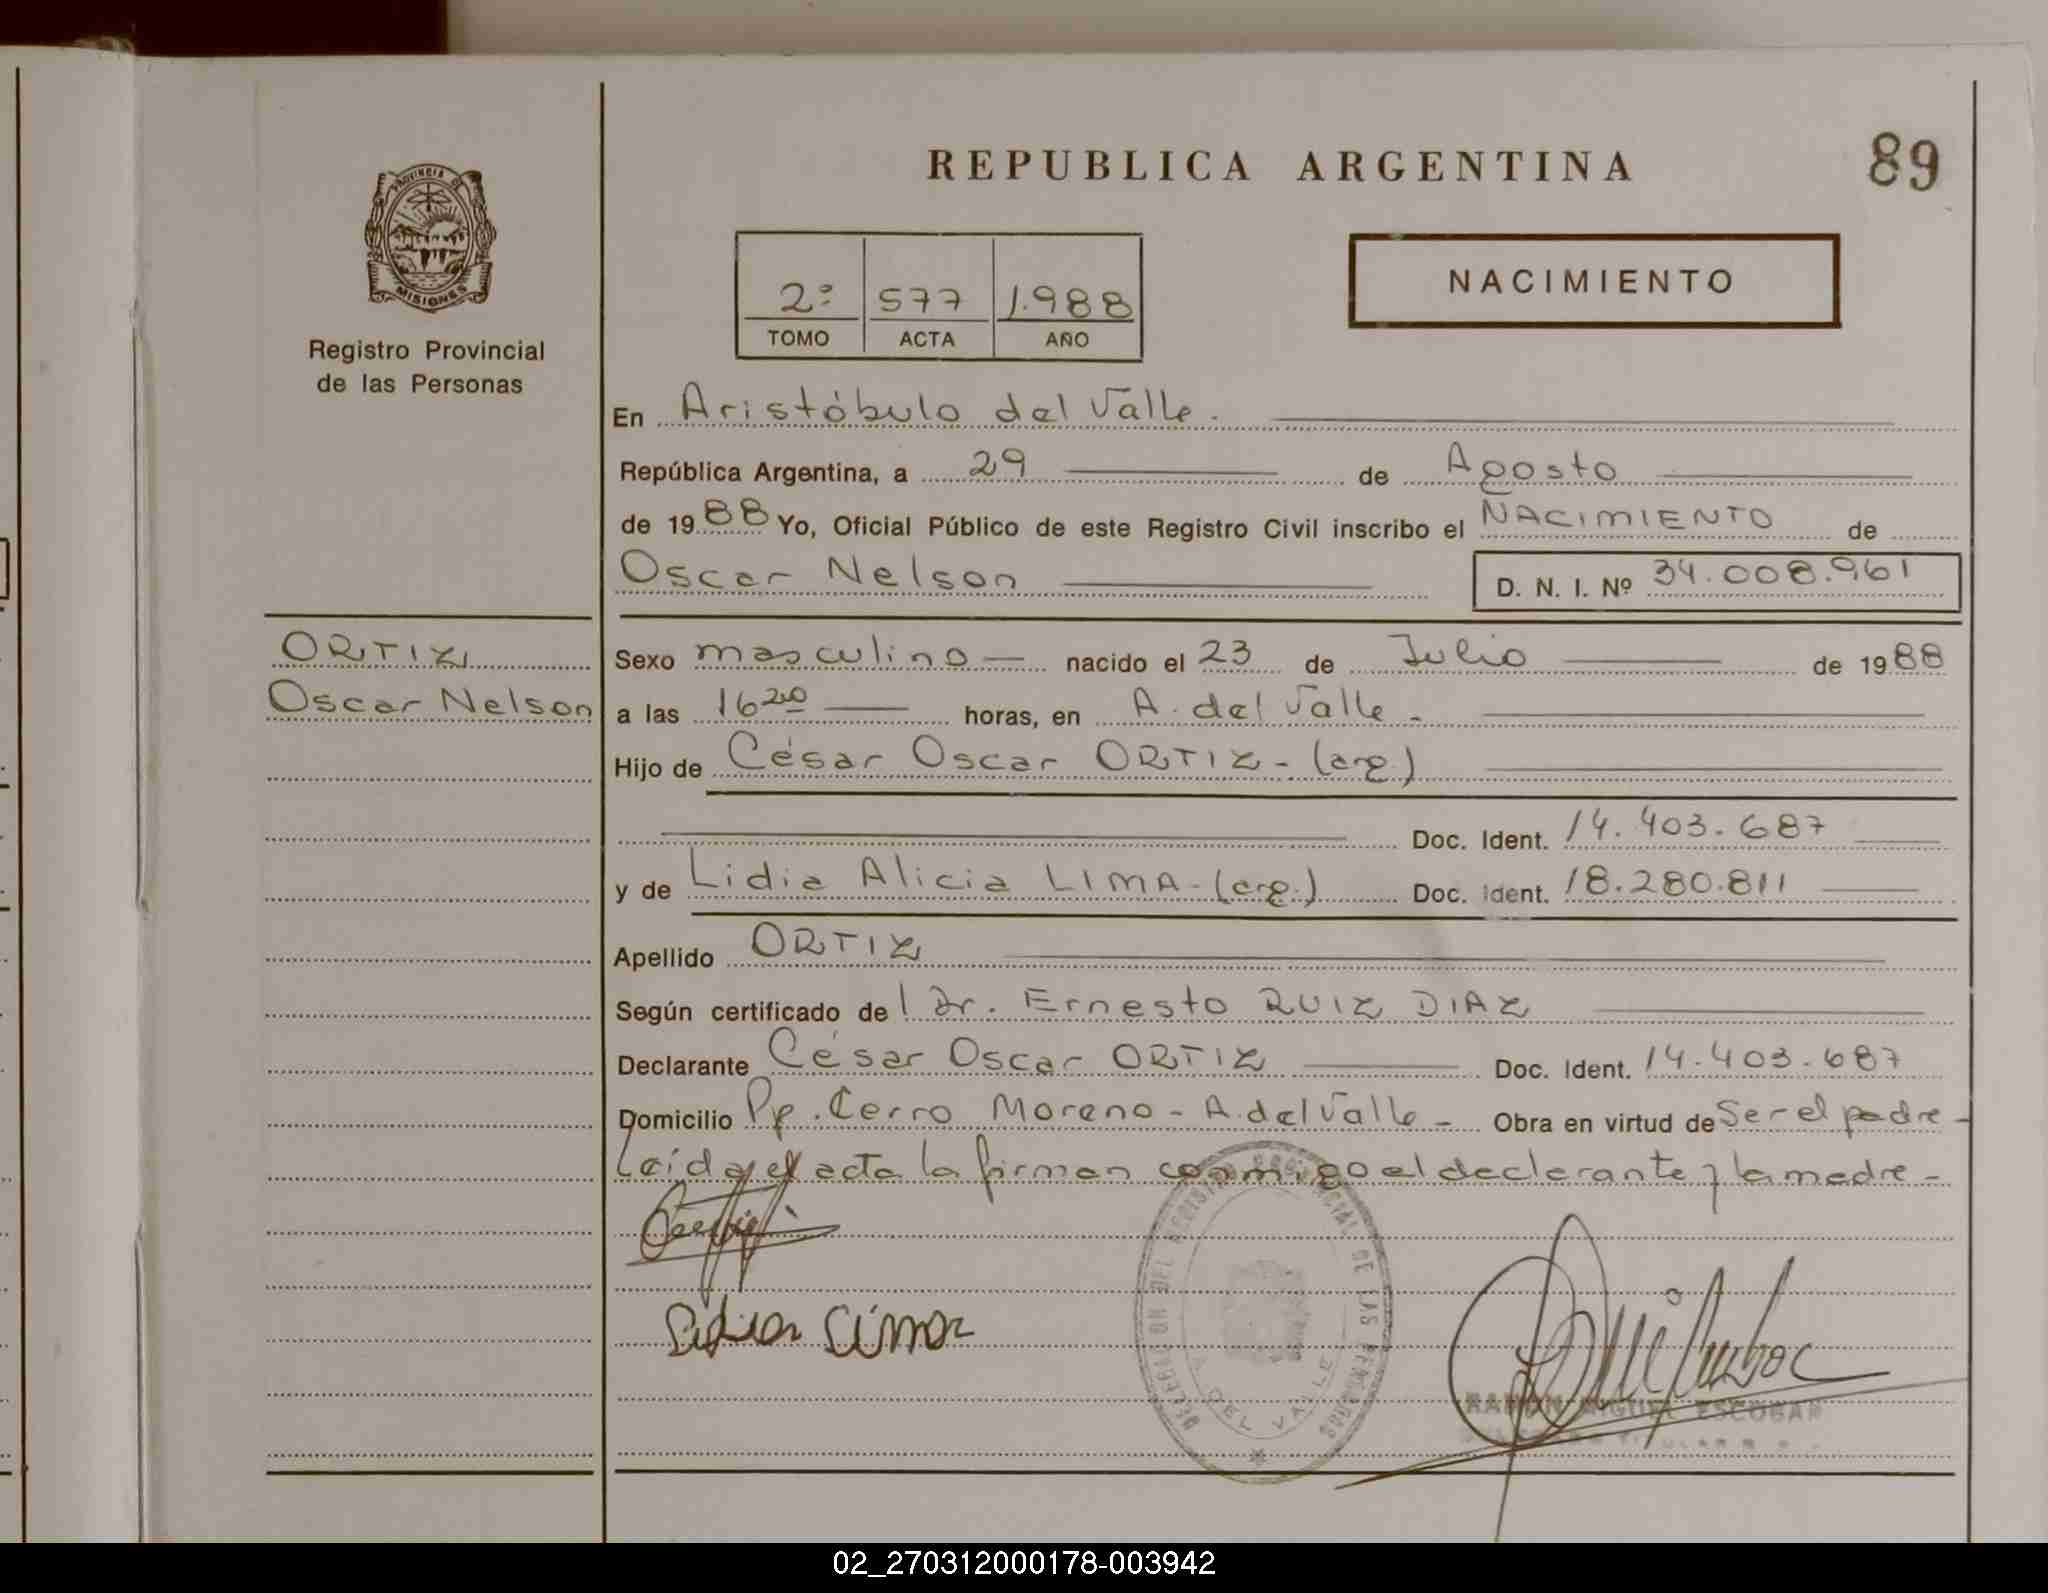 REPUBLICA ARGENTINA
89
PROVINCIA DE
MISIONES
Registro Provincial
de las Personas
2º 577 1.988
TOMO ACTA AÑO
NACIMIENTO
En Aristóbulo del Valle.
República Argentina, a 29 de Agosto
de 1988 Yo, Oficial Público de este Registro Civil inscribo el NACIMIENTO de
Oscar Nelson D. N. I. Nº 34.008.961
ORTIZ
Oscar Nelson
Sexo masculino nacido el 23 de Julio de 1988
a las 16 20 horas, en A. del Valle.
Hijo de César Oscar ORTIZ - (arg.)
Doc. Ident. 14.403.687
y de Lidia Alicia LIMA - (arg.) Doc. Ident. 18.280.811
Apellido ORTIZ
Según certificado del Dr. Ernesto RUIZ DIAZ
Declarante César Oscar ORTIZ Doc. Ident. 14.403.687
Domicilio Pje. Cerro Moreno - A. del Valle - Obra en virtud de Ser el padre -
Leída el acta la firman conmigo el declarante y la madre -
DELEGACION DEL REGISTRO PROVINCIAL DE LAS PERSONAS
A DEL VALLE
RAMON MIGUEL ESCOBAR
02_270312000178-003942